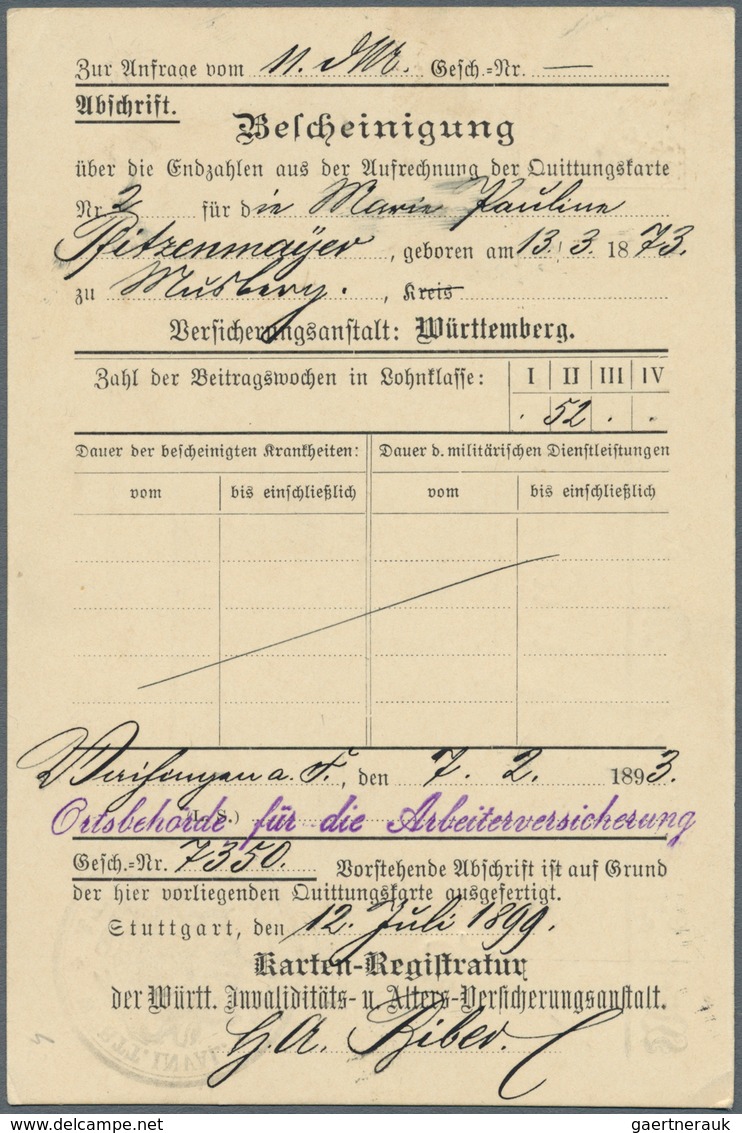 Zur Anfrage vom 11. d. Mts. Gesch.=Nr. —
Abschrift.
Bescheinigung
über die Endzahlen aus der Aufrechnung der Quittungskarte
Nr. 2 für die Marie Pauline
Pfitzenmayer, geboren am 13. 3. 1873.
zu Musberg., Kreis
Versicherungsanstalt: Württemberg.
Zahl der Beitragswochen in Lohnklasse: I II III IV
. 52 . .
Dauer der bescheinigten Krankheiten: Dauer d. militärischen Dienstleistungen
vom bis einschließlich vom bis einschließlich
Vaihingen a. F., den 7. 2. 1893.
(L. S.)
Ortsbehörde für die Arbeiterversicherung
Gesch.=Nr. 7350. Vorstehende Abschrift ist auf Grund
der hier vorliegenden Quittungskarte ausgefertigt.
Stuttgart, den 12. Juli 1899.
Karten-Registratur
der Württ. Invaliditäts- u. Alters-Versicherungsanstalt.
G. A. Biber.
gaertnerauk